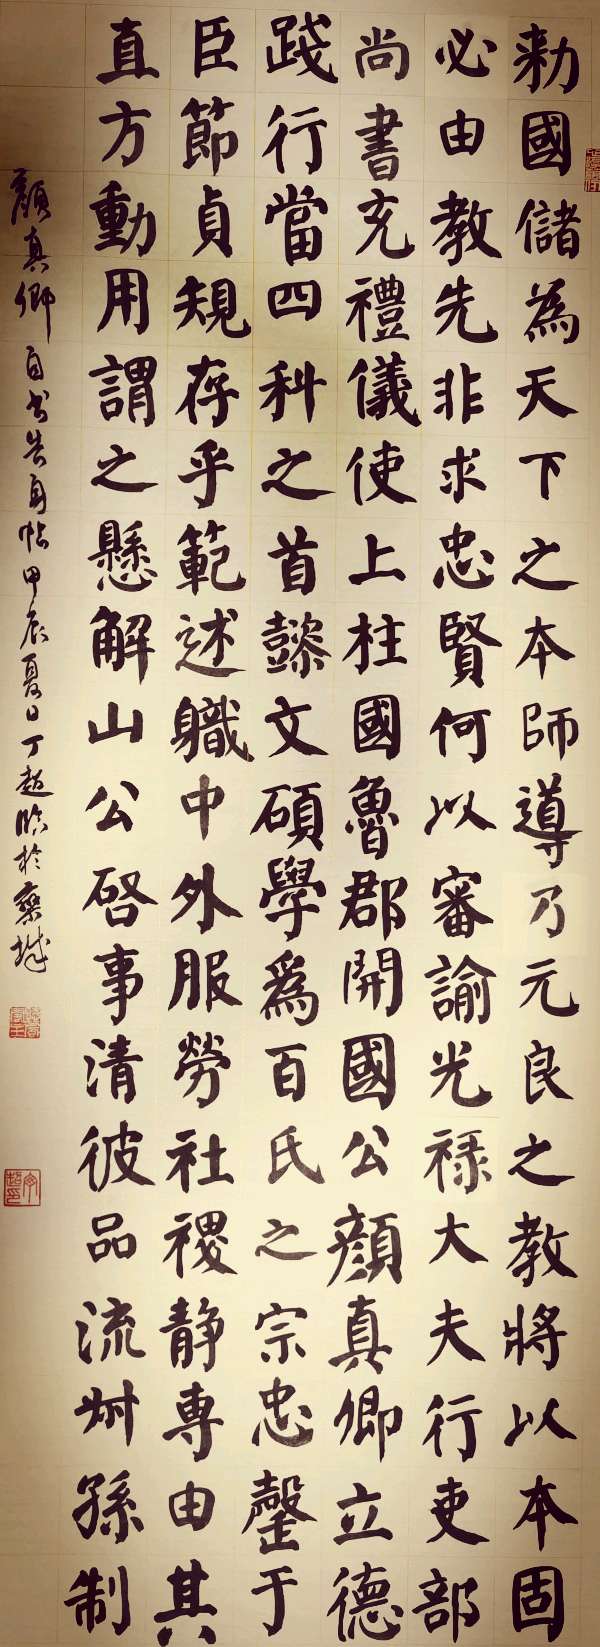 勅國儲為天下之本師導乃元良之教將以本固
必由教先非求忠賢何以審諭光祿大夫行吏部
尚書充禮儀使上柱國魯郡開國公顏真卿立德
踐行當四科之首懿文碩學為百氏之宗忠罄于
臣節貞規存乎範述職中外服勞社稷静專由其
直方動用謂之懸解山公啓事清彼品流叔孫制
顏真卿自书告身帖甲辰夏日丁超临於欒城